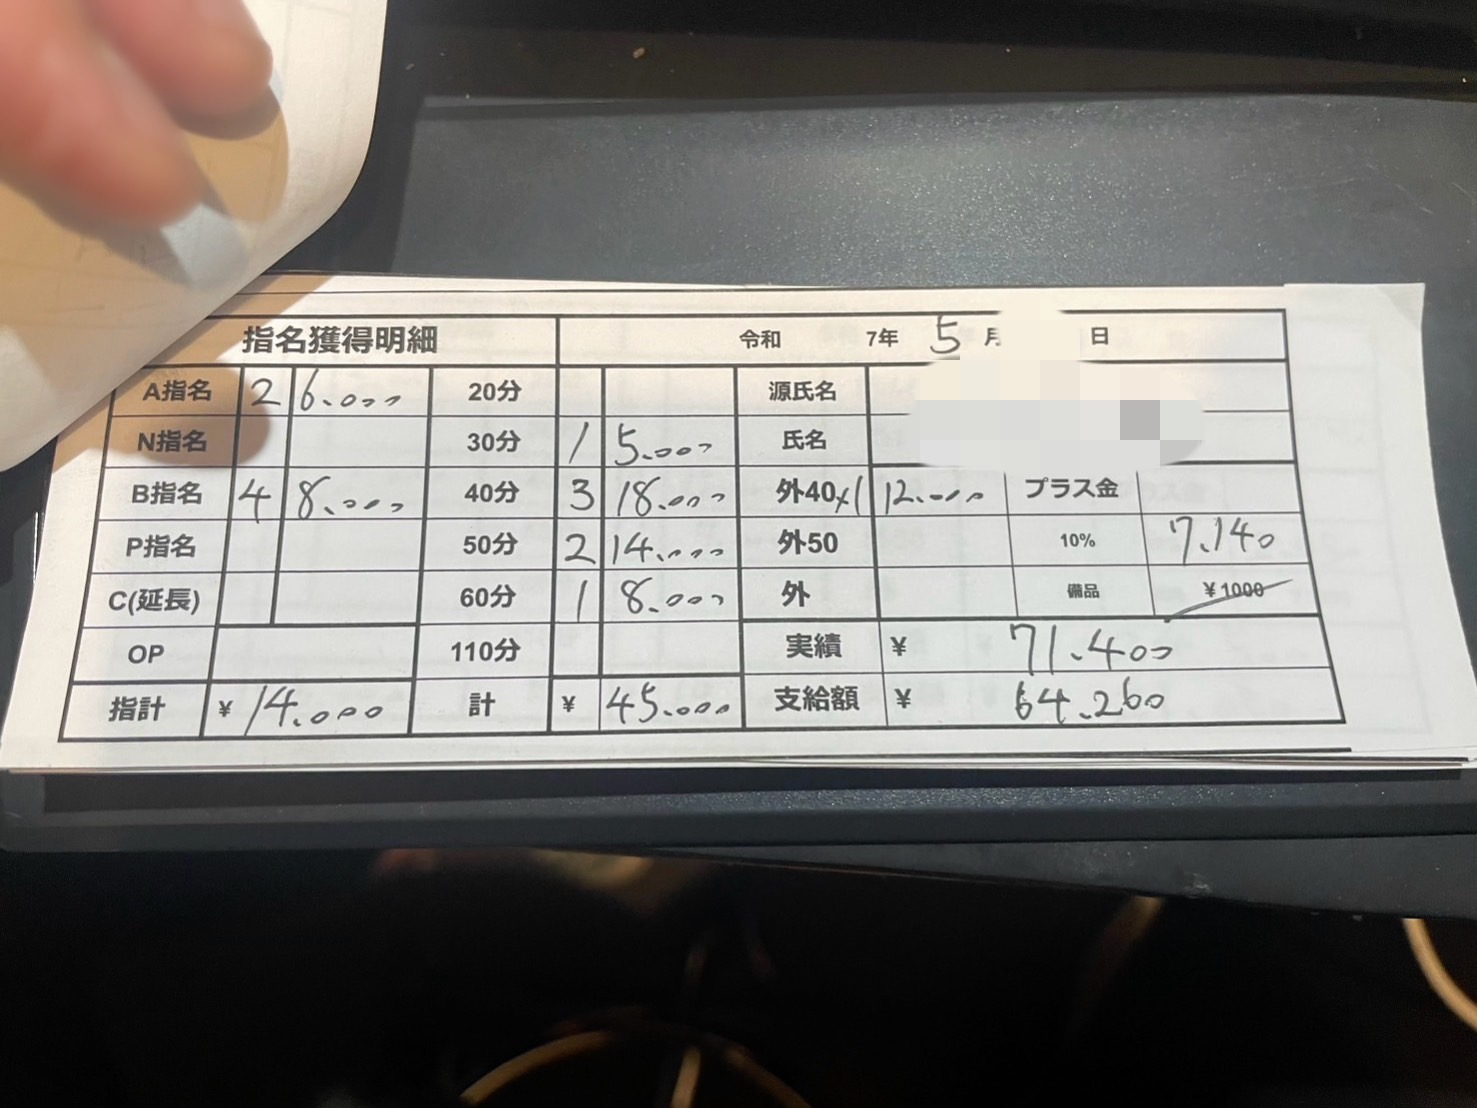 指名獲得明細 令和 7年 5月 日
A指名 2 6.000 20分 源氏名
N指名 30分 1 5.000 氏名
B指名 4 8.000 40分 3 18.000 外40x1 12.000 プラス金
P指名 50分 2 14.000 外50 10% 7.140
C(延長) 60分 1 8.000 外 備品 ¥1000
OP 110分 実績 ¥ 71.400
指計 ¥ 14.000 計 ¥ 45.000 支給額 ¥ 64.260